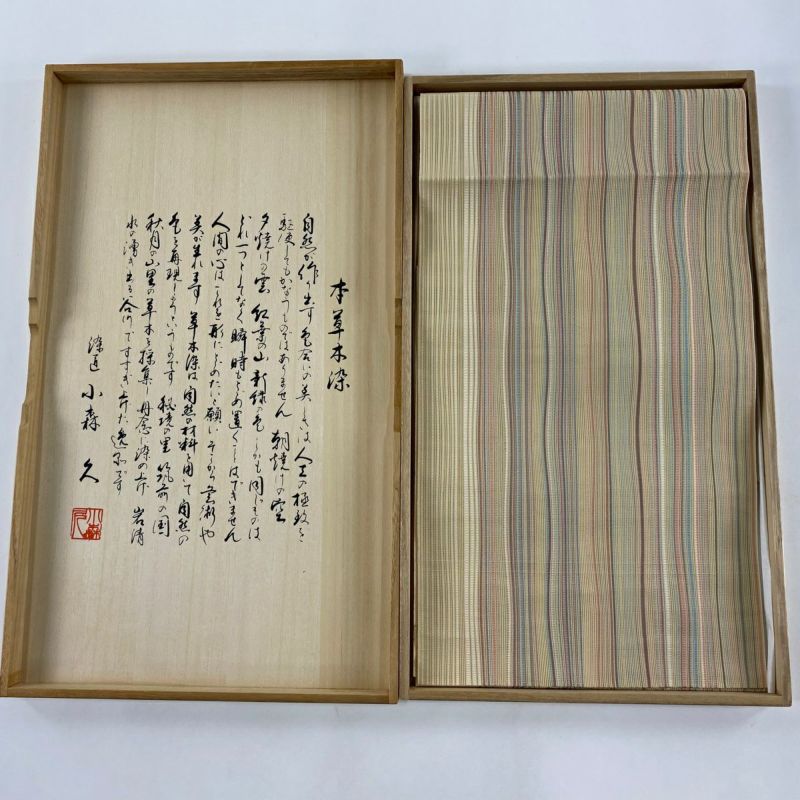 本草木染
自然が作り出す色合いの美しさは人工の極致を
駆使してもかなうものではありません 朝焼けの空
夕焼けの雲 紅葉の山 新緑の色 しかも同じものは
どれ一つとしてなく 瞬時もとめ置くことはできません
人間の心はこれを形にとどめたいと願い そこから芸術や
美が生れます 草木染は自然の材料を用いて自然の
色を再現しようというものです 秘境の里 筑前の国
秋月の山里の草木を採集し丹念に染め上げ 岩清
水の湧き出る谷川ですすぎ上げた逸品です
染匠 小森 久